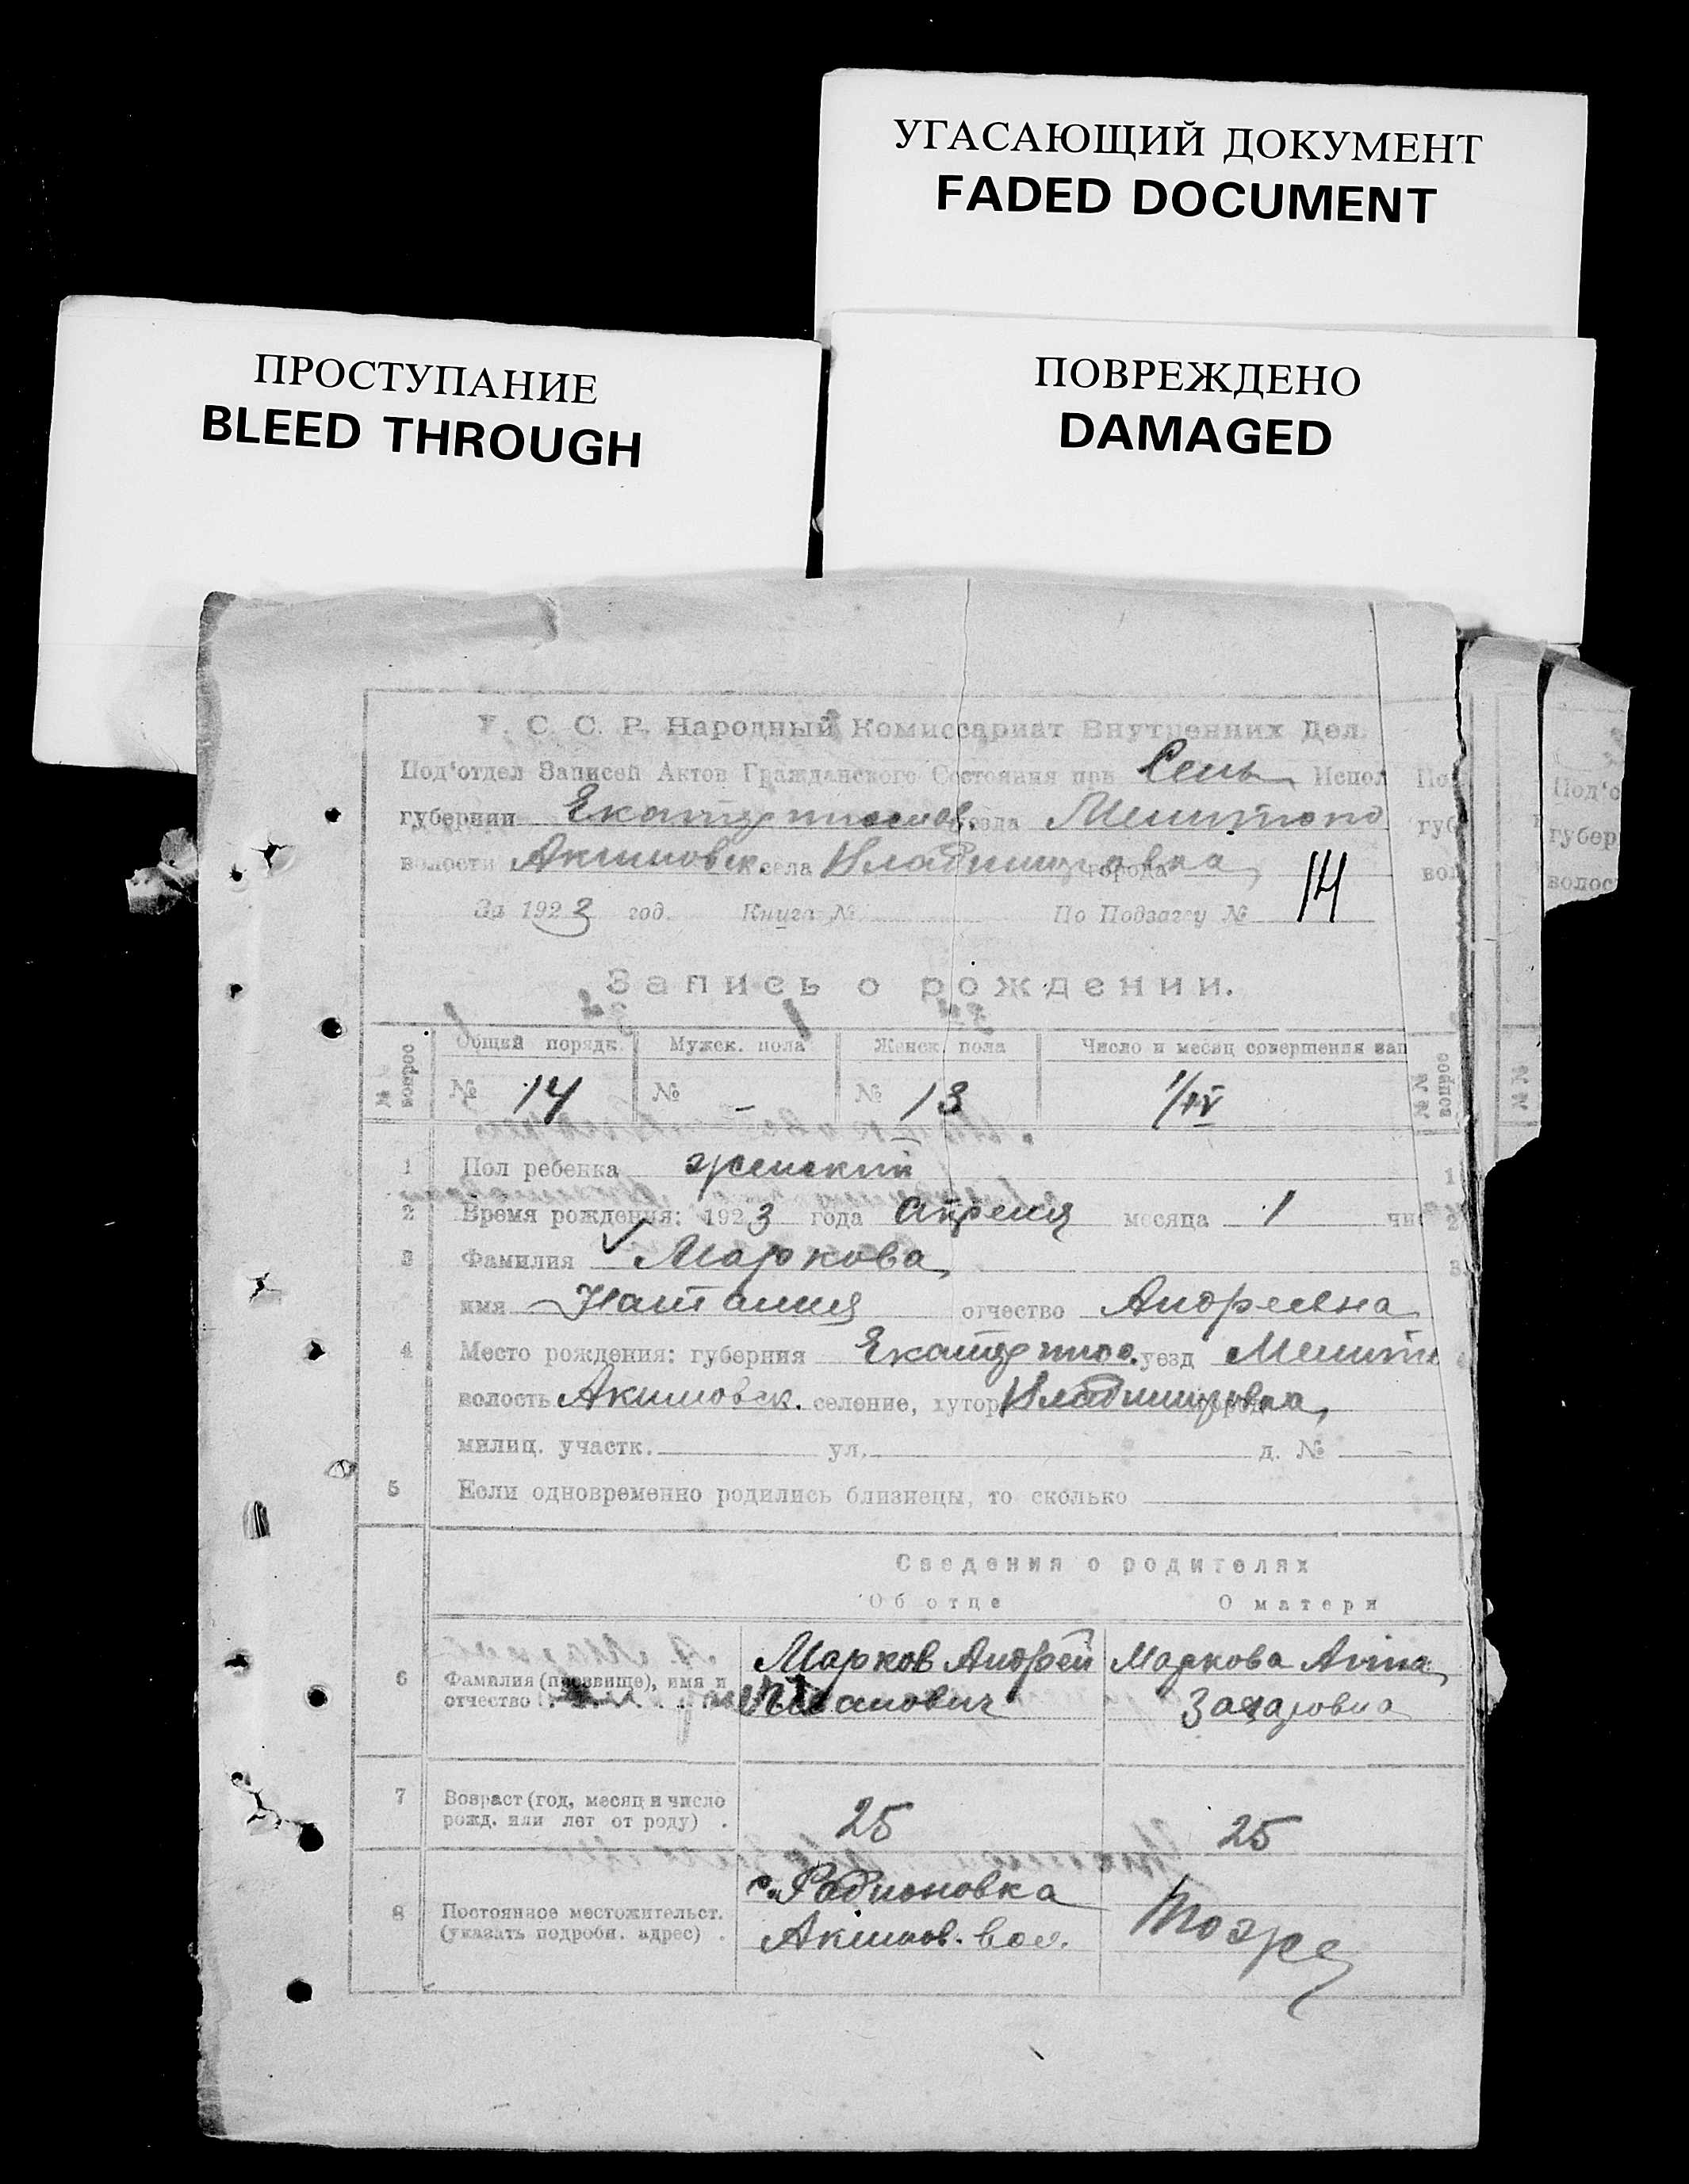 УГАСАЮЩИЙ ДОКУМЕНТ
FADED DOCUMENT
ПРОСТУПАНИЕ
BLEED THROUGH
ПОВРЕЖДЕНО
DAMAGED
У. С. С. Р. Народный Комиссариат Внутренних Дел.
Под'отдел Записей Актов Гражданского Состояния при Сель Испол
губернии уезда Мелитопо
волости Акимовск. села Владимировка города
За 1923 год. Книга № По Подзагсу № 14
Запись о рождении.
№ вопрос Общий порядк. Мужск. пола Женск. пола Число и месяц совершения зап
№ 14 № - № 13 1/IV
1 Пол ребенка женский
2 Время рождения: 1923 года Апреля месяца 1 чи
3 Фамилия Маркова
имя Наталия отчество Андреевна
4 Место рождения: губерния уезд Мелит
волость Акимовск. селение, хутор Владимировка,
милиц. участк. ул. д. №
5 Если одновременно родились близнецы, то сколько
Сведения о родителях
Об отце О матери
6 Фамилия (прозвище), имя и отчество Марков Андрей Маркова Анна
Иванович Захаровна
7 Возраст (год, месяц и число
рожд. или лет от роду) . 25 25
8 Постоянное местожительст.
(указать подробн. адрес) . с. Радионовка
Акимов. вол. Тоже
Под'о
губер
волос
№ №
вопрос